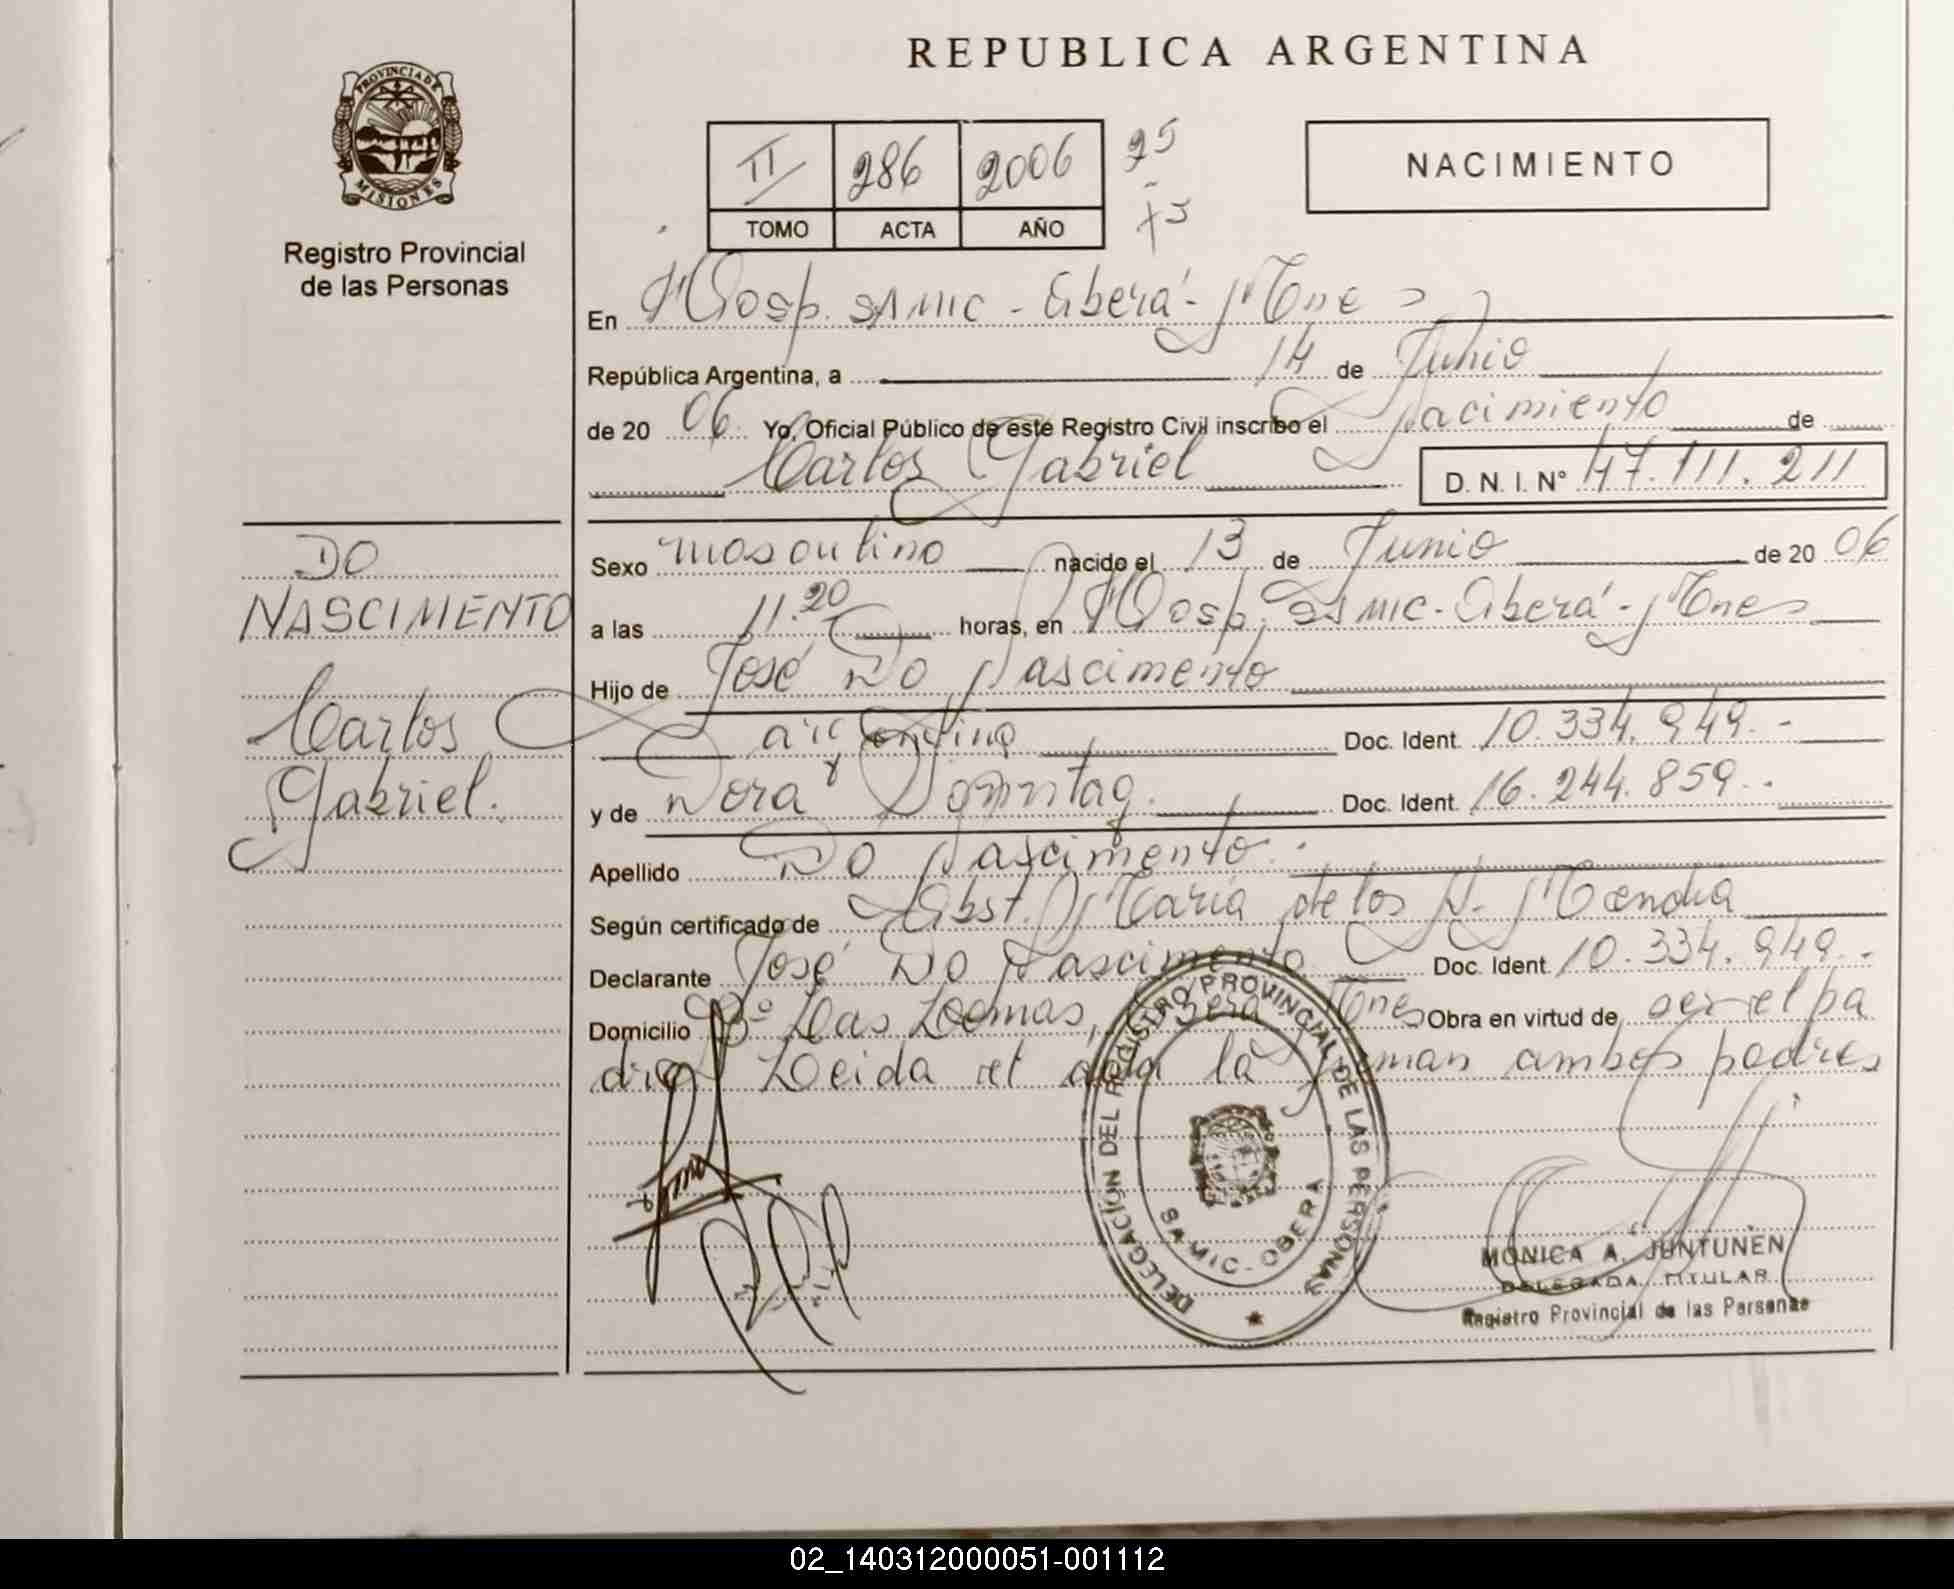 REPUBLICA ARGENTINA
PROVINCIA DE MISIONES
Registro Provincial
de las Personas
II 286 2006 25
TOMO ACTA AÑO
NACIMIENTO
En Hosp. SAMIC - Oberá - Mnes
República Argentina, a 14 de Junio
de 2006. Yo, Oficial Público de este Registro Civil inscribo el Nacimiento de
Carlos Gabriel D. N. I. N° 47.111.211
DO
NASCIMENTO
Carlos
Gabriel.
Sexo masculino nacido el 13 de Junio de 2006
a las 11.20 horas, en Hosp. SAMIC - Oberá - Mnes
Hijo de José Do Nascimento
argentino Doc. Ident. 10.334.949.-
y de Dora Doc. Ident. 16.244.859.-
Apellido Do Nascimento.-
Según certificado de Obst. María de los A.
Declarante José Do Nascimento Doc. Ident. 10.334.949.-
Domicilio B° Las Lomas, Oberá Mnes Obra en virtud de ser el pa
dre Leida el acta la firman ambos padres
DELEGACIÓN DEL REGISTRO PROVINCIAL DE LAS PERSONAS
SAMIC - OBERA
MONICA A. JUNTUNEN
DELEGADA TITULAR
Registro Provincial de las Personas
02_140312000051-001112